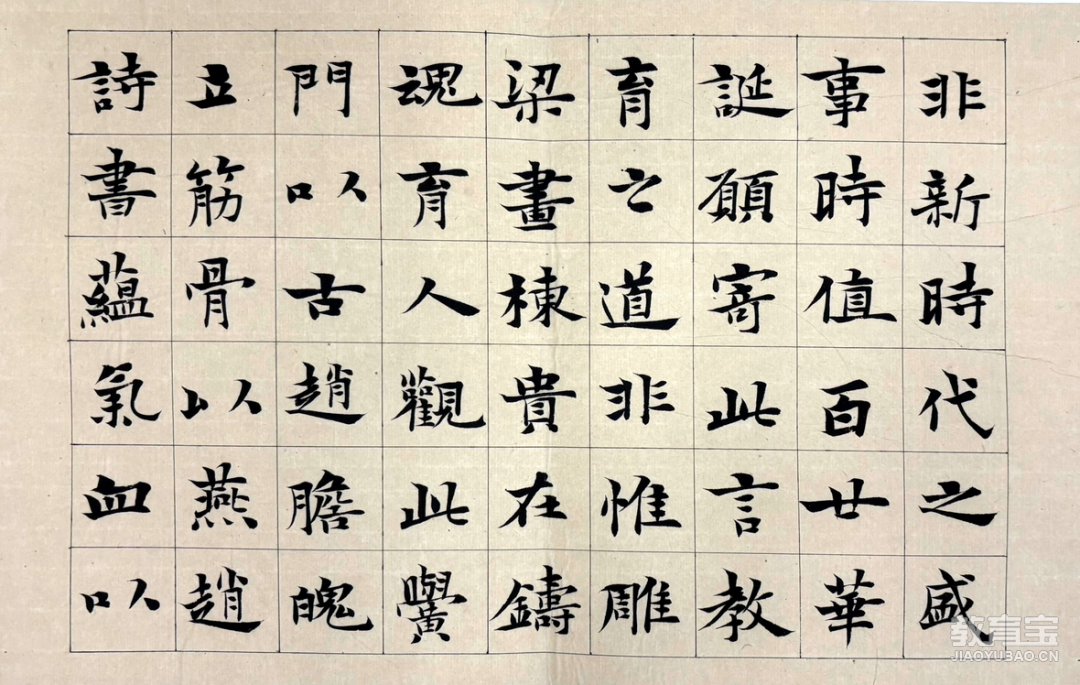 非新時代之盛
事時值百廿華
誕願寄此言教
育之道非惟雕
梁畫棟貴在鑄
魂育人觀此黌
門以古趙膽魄
立筋骨以燕趙
詩書蘊氣血以
教育宝
JIAOYUBAO.CN